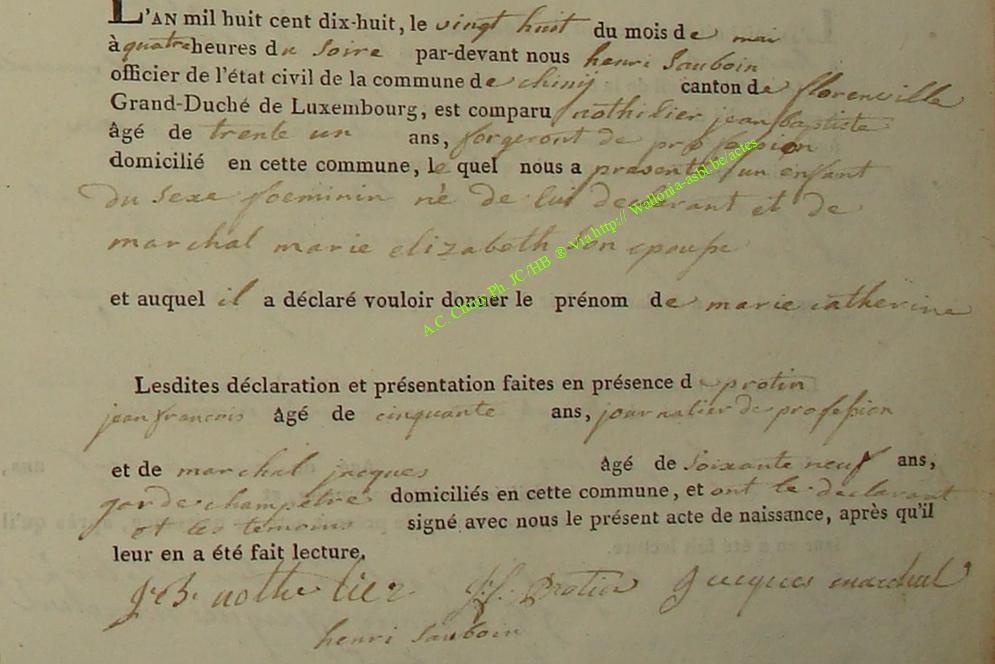 L'AN mil huit cent dix-huit, le vingt huit du mois de mai
à quatre heures du soire par-devant nous henri sauboin
officier de l'état civil de la commune de chinij canton de florenville
Grand-Duché de Luxembourg, est comparu nothilier jean baptiste
âgé de trente un ans, forgeront de profession
domicilié en cette commune, le quel nous a présenté un enfant
du sexe foeminin né de lui declarant et de
marchal marie elizabeth son epouse
et auquel il a déclaré vouloir donner le prénom de marie catherine
Lesdites déclaration et présentation faites en présence de protin
jean francois âgé de cinquante ans, journalier de profession
et de marchal jacques âgé de soixante neuf ans,
garde champetre domiciliés en cette commune, et ont le declarant
et les temoins signé avec nous le présent acte de naissance, après qu'il
leur en a été fait lecture.
J.B. nothelier J.f. Protin Jacques marchal
henri sauboin
A.C. Chiny Ph. JC/HB ® Via http:// Wallonia-asbl.be/actes